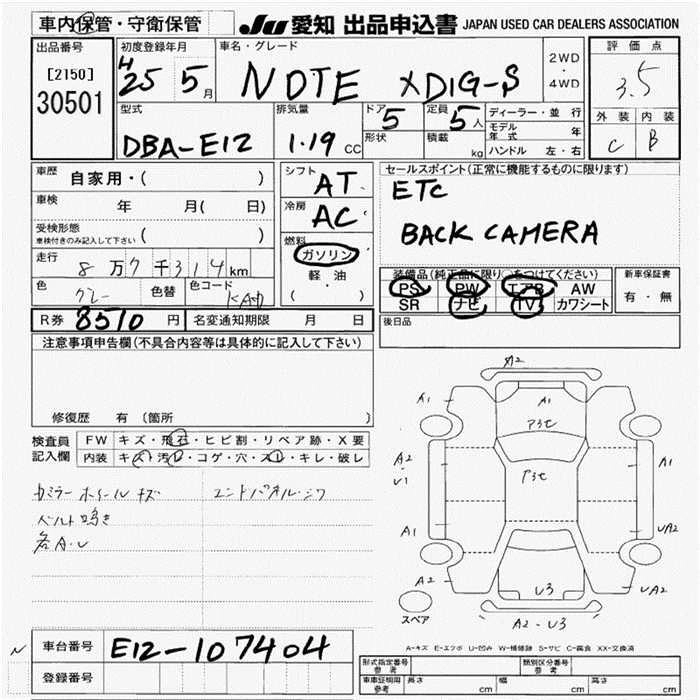 車内保管・守衛保管
JU 愛知 出品申込書 JAPAN USED CAR DEALERS ASSOCIATION
出品番号
[2150]
30501
初度登録年月
H 25 5月
車名・グレード
NOTE X DIG-S
2WD
・
4WD
評価点
3.5
外装 内装
C B
型式
DBA-E12
排気量
1.19 CC
ドア
5
形状
定員
5人
積載
kg
ディーラー・並行
モデル年式 年
ハンドル 左・右
車歴
自家用・( )
車検
年 月( 日)
受検形態
車検付きのみ記入して下さい ( )
走行
8万7千314km
色
グレー
色替
色コード
KAD
シフト
AT
冷房
AC
燃料
ガソリン
軽・油
( )
セールスポイント(正常に機能するものに限ります)
ETC
BACK CAMERA
装備品(純正品に限り○をつけてください)
PS PW エアB AW
SR ナビ TV カワシート
新車保証書
有・無
R券 8510円
名変通知期限 月 日
後日品
注意事項申告欄(不具合内容等は具体的に記入して下さい)
修復歴 有(箇所 )
検査員
記入欄
FW キズ・飛石・ヒビ割・リペア跡・X要
内装 キズ・汚レ・コゲ・穴・スレ・キレ・破レ
カミラーホイールキズ
エンドパネル・シワ
ベルト鳴き
各A・U
A2
A1
A1
アラセ
A2
U1
アラセ
A1
A1
UA2
A2
U3
UA2
スペア
A2-U3
A-キズ E-エクボ U-凹み W-補修跡 S-サビ C-腐食 XX-交換済
車台番号
E12-107404
登録番号
形式指定番号
参考
類別区分番号
参考
車庫証明用
参考
長さ cm
幅 cm
高さ cm